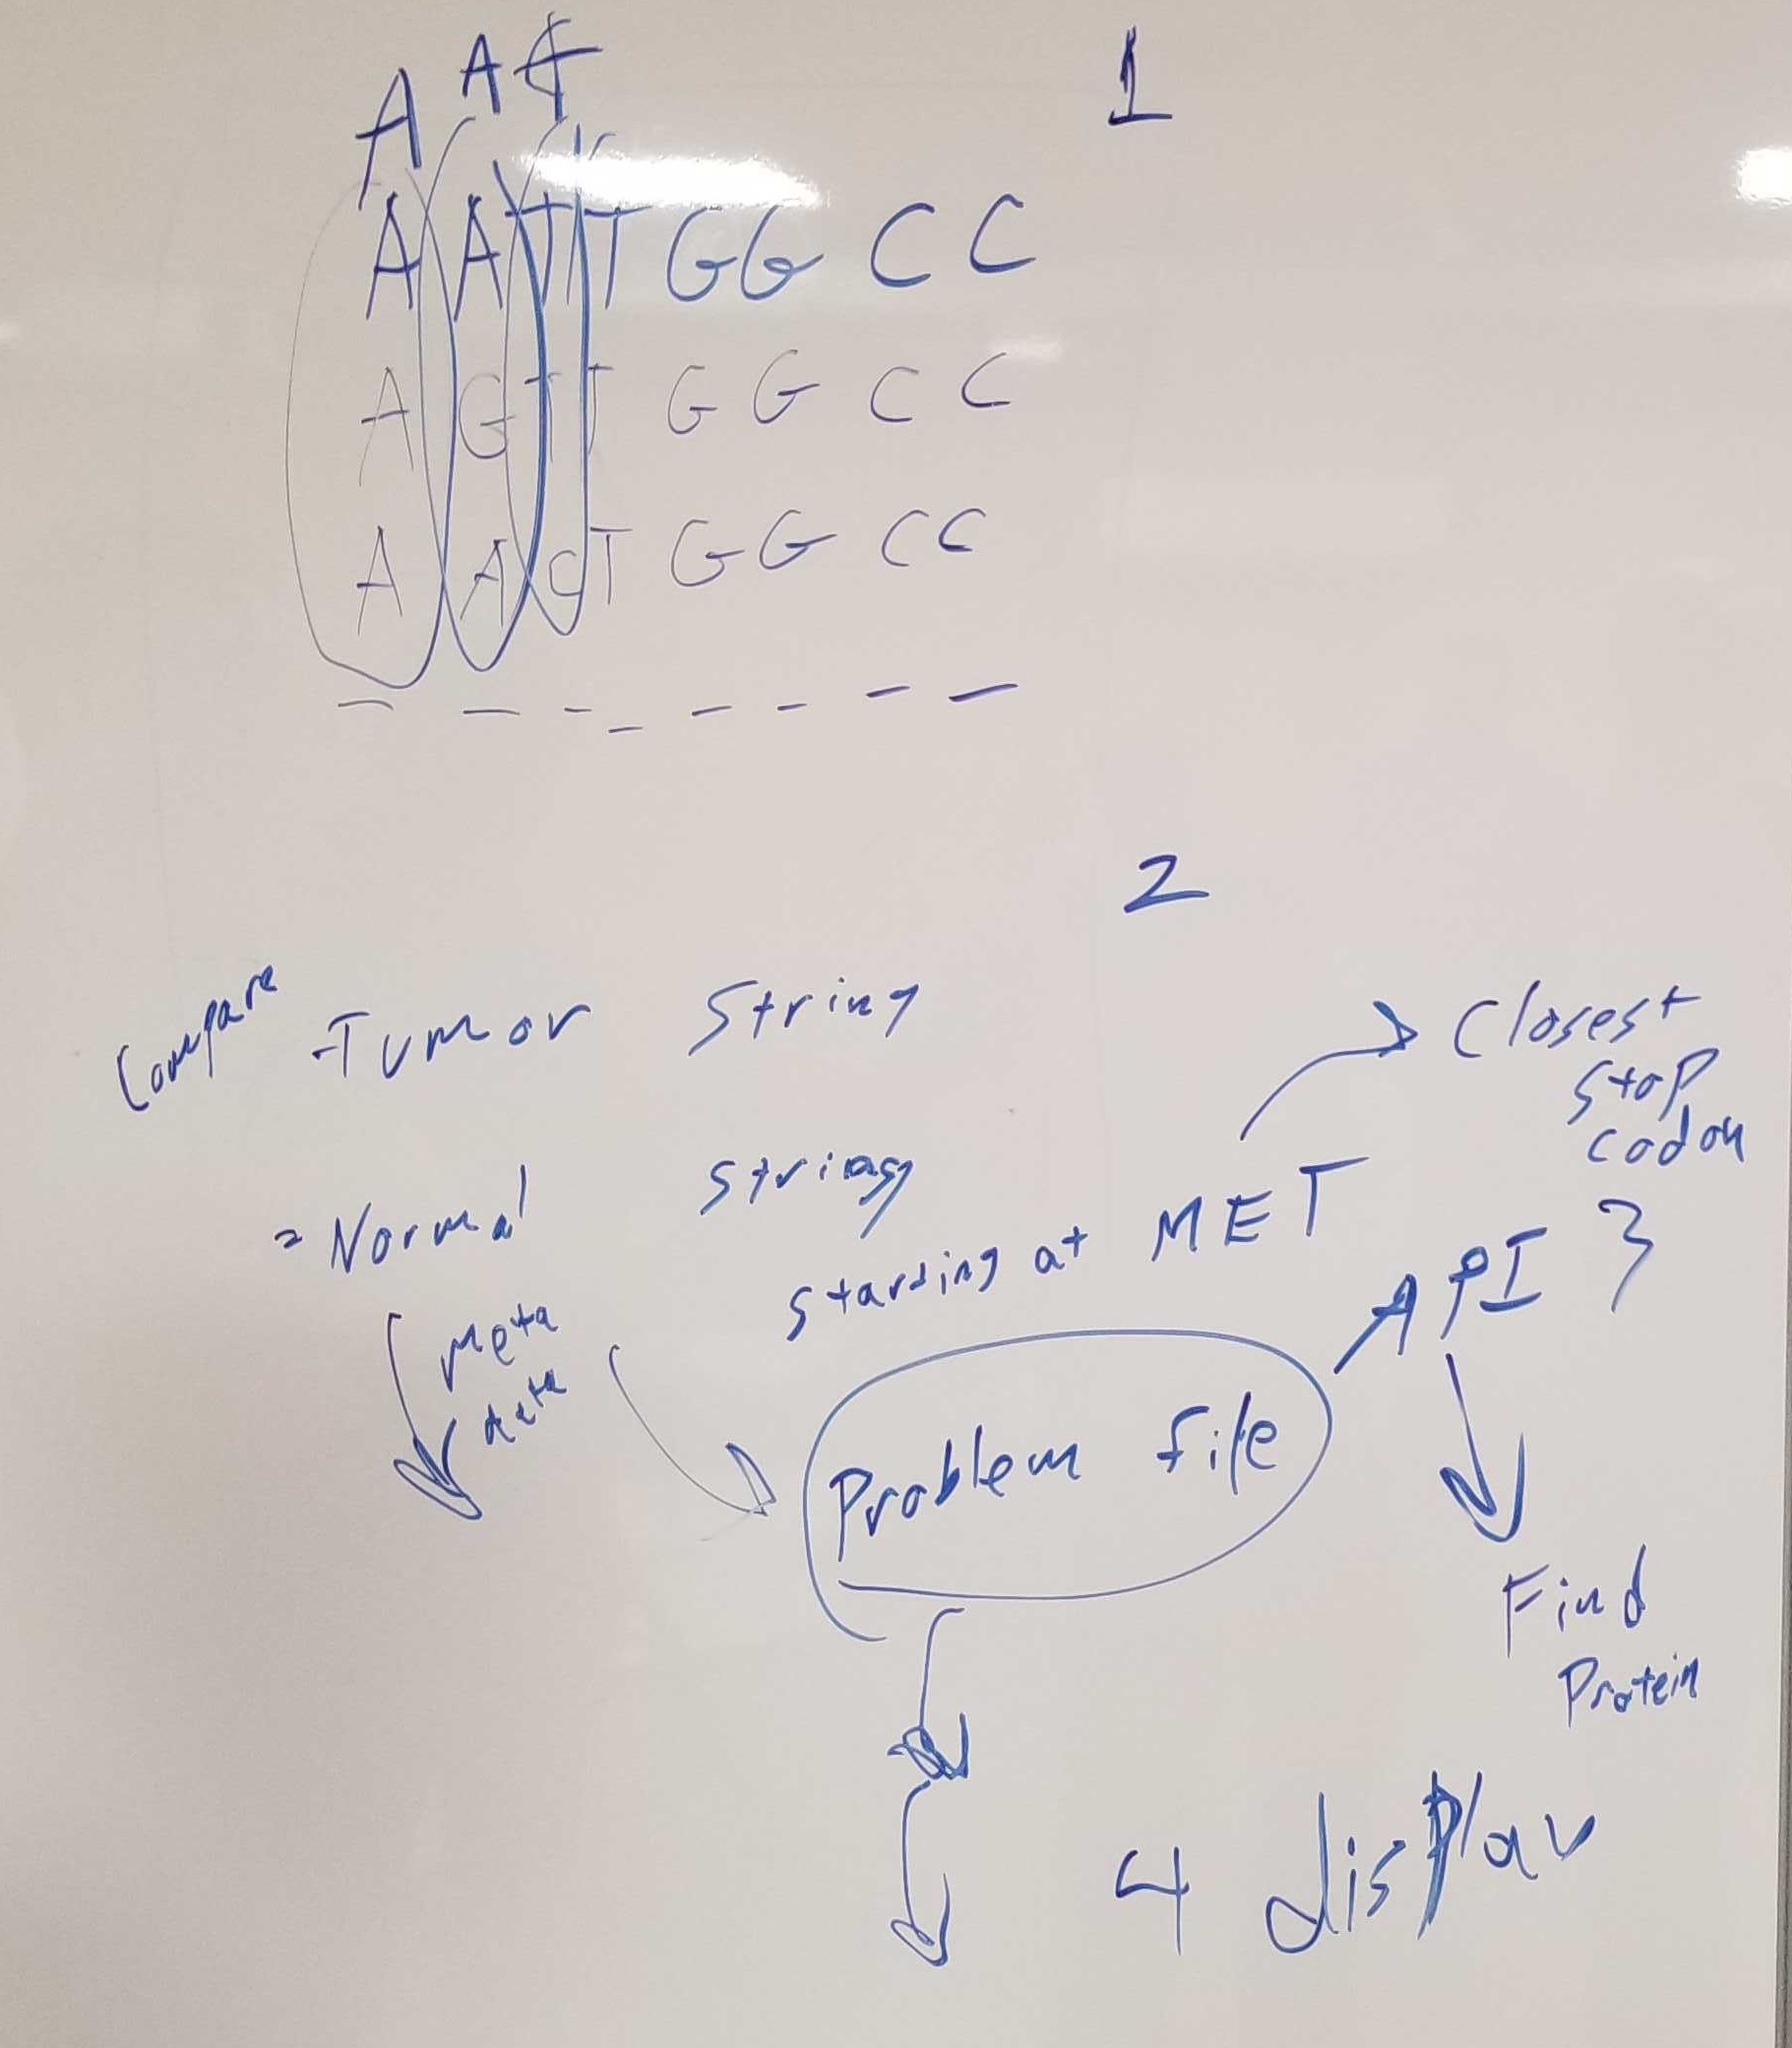 A A
1
A A T T G G C C
A G T T G G C C
A A C T G G C C
2
Compare
-Tumor String
Closest
Stop
codon
= Normal String
starting at MET
API 3
Meta
data
Problem file
Find
Protein
4 display